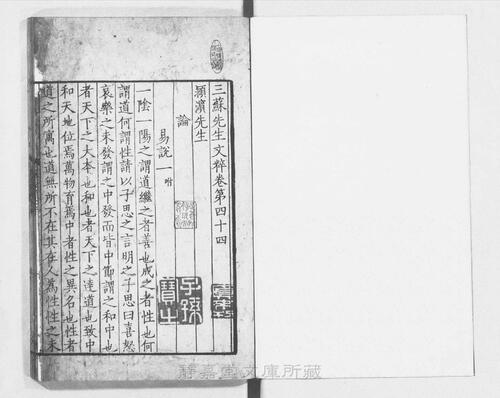 三蘇先生文粹卷第四十四
潁濱先生
論
易說一
一陰一陽之謂道繼之者善也成之者性也何
謂道何謂性請以子思之言明之子思曰喜怒
哀樂之未發謂之中發而皆中節謂之和中也
者天下之大本也和也者天下之達道也致中
和天地位焉萬物育焉中者性之異名也性者
道之所寓也道無所不在其在人為性性之未
子孫
寶之
靜嘉堂文庫所藏